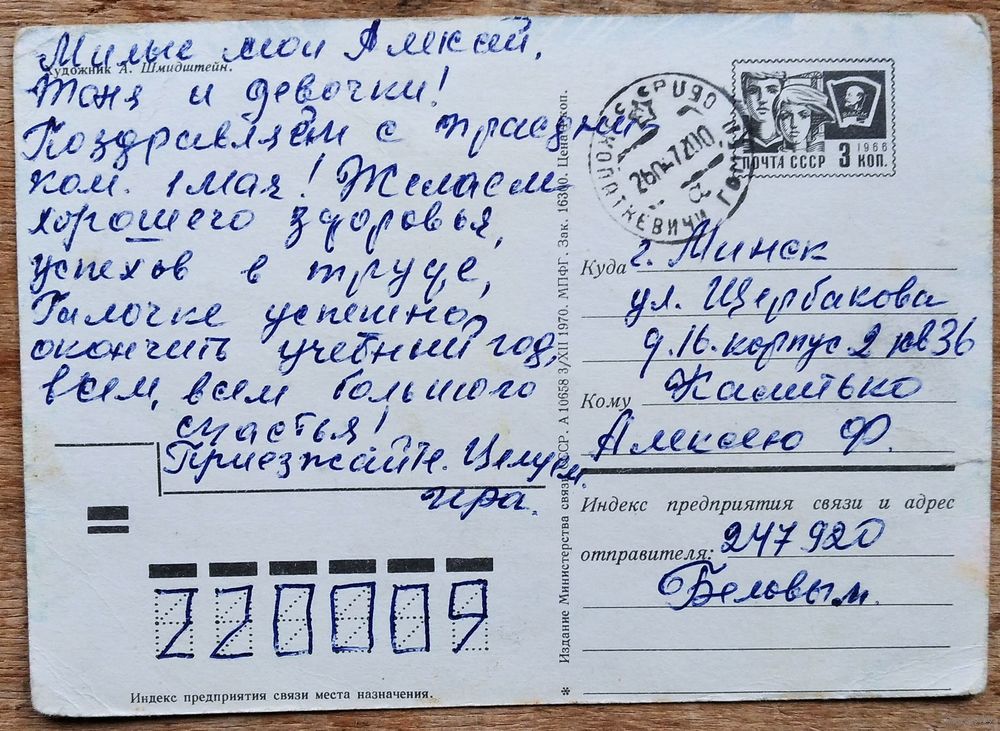 Милые мои Алексей,
Художник А. Шмидштейн.
Тоня и девочки!
Поздравляем с праздни
ком. 1 мая! Желаем
хорошего здоровья,
успехов в труде,
Галочке успешно
окончить учебный год,
всем, всем большого
счастья!
Приезжайте. Целуем
Ира.
ПОЧТА СССР 3 КОП.
1966
Куда г. Минск
ул. Щербакова
д. 16. корпус 2 кв 36
Кому
Алексею Ф.
Индекс предприятия связи и адрес
отправителя: 247920
Беловым.
220009
Индекс предприятия связи места назначения.
Издание Министерства связи СССР. А 10658 3/XII 1970. МПФГ. Зак. 16300. Цена 4 коп.
*